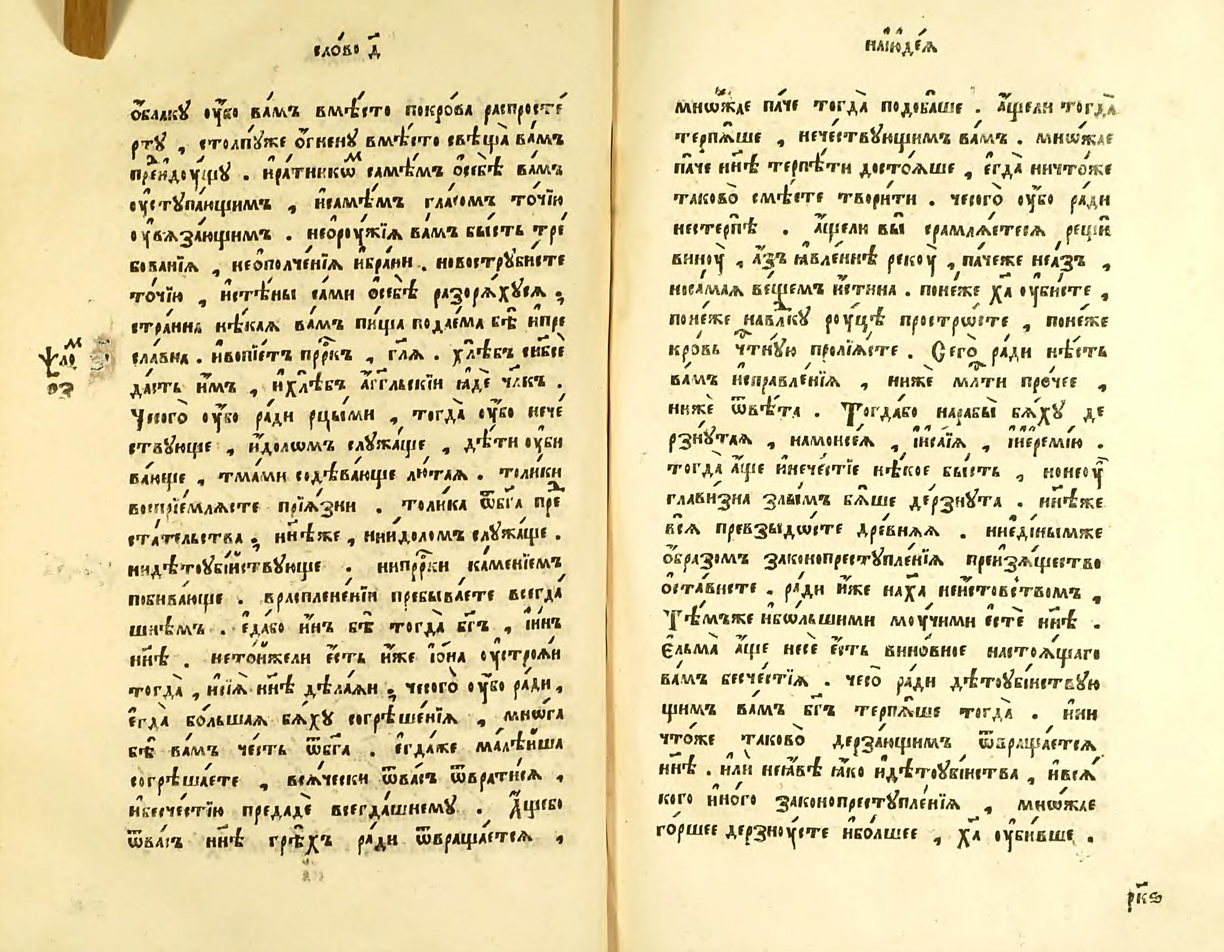 сло́во д҃
ѻ҆́блаку ᲂу҆̀бо ва́мъ вмѣ́сто покро́ва распросте́
рту , столпу́же ѻ҆́гнену вмѣ́сто свѣща̀ ва́мъ
преидꙋ́щꙋ . и҆ра́тникѡм самѣ́мъ ѻ҆себѣ̀ ва́мъ
ᲂу҆ступа́ющимъ , и҆самѣ́мъ гла́сомъ то́чїю
ᲂу҆ꙗзза́ющимъ . неѻ҆рꙋ́жїѧ ва́мъ бы́сть тре́
бованїѧ , неѻ҆полче́нїѧ и҆бра́ни . новострꙋ́бисте
то́чїю , и҆стѣ́ны са́ми ѻ҆себѣ̀ разорѧ́хуся ;
стра́нна нѣ́каѧ ва́мъ пи́ща пода́ема бѣ̀ и҆пре
сла́вна . и҆вопїе́тъ прⷪ҇ркъ , гл҃ѧ . хлѣ́бъ сн҃бсе
да́стъ и҆̀мъ , и҆хлѣ́бъ а҆́гг҃льскїи ꙗ҆дѐ чл҃къ .
Чесого̀ ᲂу҆̀бо ра́ди рцы́ми , тогда̀ ᲂу҆̀бо нече́
ствующе , и҆́доломъ слꙋжа́ще , дѣ́ти ᲂу҆би
ва́юще , тма́ми содѣва́юще лю́таѧ . толи́ки
воспрїе́млѧсте прїѧ́зни . толи́ка ѿбг҃а пред
ста́тельства ; нн҃ѣже , нии҆́доломъ слꙋжа́ще .
нидѣтоᲂу҆бі́йствующе . нипрⷪ҇рки ка́менїемъ
побива́юще . враспле́ненїи пребыва́ете всегда́
шнѣмъ . є҆да́бо и҆́нъ бѣ̀ тогда̀ бг҃ъ , и҆и҆́нъ
нн҃ѣ . нето́йжели є҆́сть и҆́же і҆ѻ́на ᲂу҆стро́ѧи
тогда̀ , и҆сїѧ̀ нн҃ѣ дѣ́лаѧи ; чесого̀ ᲂу҆̀бо ра́ди ,
є҆гда̀ бо́льшаѧ бѧ́хꙋ согрѣше́нїѧ , мно́га
бѣ̀ ва́мъ че́сть ѿбг҃а . є҆гда́же малѣ́йша
согрѣша́ете , всѧ́чески ѿва́съ ѿврати́сѧ ,
и҆бесче́стїю предадѐ всегда́шнему . А҆́щебо
ѿва́съ нн҃ѣ грѣ́хъ ра́ди ѿвраща́етсѧ ,
ѱало́м
о҃з
наїꙋде́ѧ
мно́жае па́че тогда̀ подоба́ше . а҆́щели тогда̀
терпѧ́ше , нече́ствующимъ ва́мъ . мно́жае
па́че нн҃ѣ терпѣ́ти досто́ѧше , є҆гда̀ ничто́же
таково̀ смѣ́ете твори́ти . чесого̀ ᲂу҆̀бо ра́ди
нестерпѣ̀ . а҆́щели вы̀ срамлѧ́етесѧ рещѝ
винꙋ̀ , а҆́зъ ꙗ҆вле́ннѣ рекꙋ̀ , па́чеже неа҆́зъ ,
носа́маѧ веще́мъ и҆́стина . поне́же хрⷭ҇та̀ ᲂу҆би́сте ,
поне́же навлⷣкꙋ рꙋ́цѣ простро́сте , поне́же
кро́вь чⷭ҇тнꙋю пролїѧ́сте . Сего̀ ра́ди нѣ́сть
ва́мъ и҆справле́нїѧ , нижѐ млⷭ҇ти про́чее ,
нижѐ ѿвѣ́та . Тогда́бо нарабы̀ бѧ́хꙋ де
рзнꙋ́таѧ , намоисе́ѧ , и҆и҆са́їѧ , и҆и҆ереми́ю .
тогда̀ а҆́ще и҆нече́стїе нѣ́кое бы́сть , ноне ᲂу҆
глави́зна злы́мъ бѧ́ше дерзнꙋ́та . нн҃ѣже
всѧ̀ превзыдо́сте дре́внѧѧ . ниеди́нымже
ѻ҆́бразомъ законопрестꙋпле́нїѧ преизѧ́щество
ѻ҆ста́висте . ра́ди и҆́же нахрⷭ҇та̀ неи́стовствомъ ,
Тѣ́мъже и҆бо́льшими мꙋ́чими є҆стѐ нн҃ѣ .
є҆льма̀ а҆́ще несѐ є҆́сть вино́вное настоѧ́щаго
ва́мъ бесче́стїѧ . чесо̀ ра́ди дѣтоᲂу҆бі́йствую
щимъ ва́мъ бг҃ъ терпѧ́ше тогда̀ . ни
что́же таково̀ дерза́ющимъ ѿвраща́етсѧ
нн҃ѣ . и҆лѝ неꙗ҆́вѣ ꙗ҆́ко и҆дѣтоᲂу҆бі́йства , и҆всѧ́
кого и҆но́го законопрестꙋпле́нїѧ , мно́жае
го́ршее дерзнꙋ́сте и҆бо́лшее , хрⷭ҇та̀ ᲂу҆би́вше .
рк҃ѕ